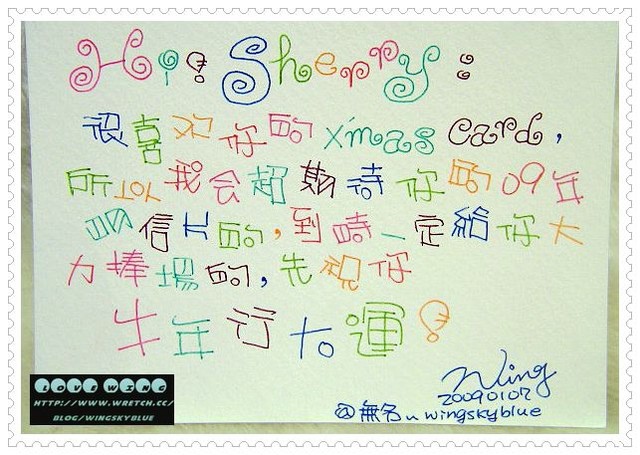 Hi! Sherry:
很喜欢你的 x'mas card,
所以我会超期待你的09年
明信片的,到時一定給你大
力捧場的,先祝你
牛年行大運!
Wing
20090107
@無名 wingskyblue
LOVE WING
HTTP://WWW.WRETCH.CC/
BLOG/WINGSKYBLUE